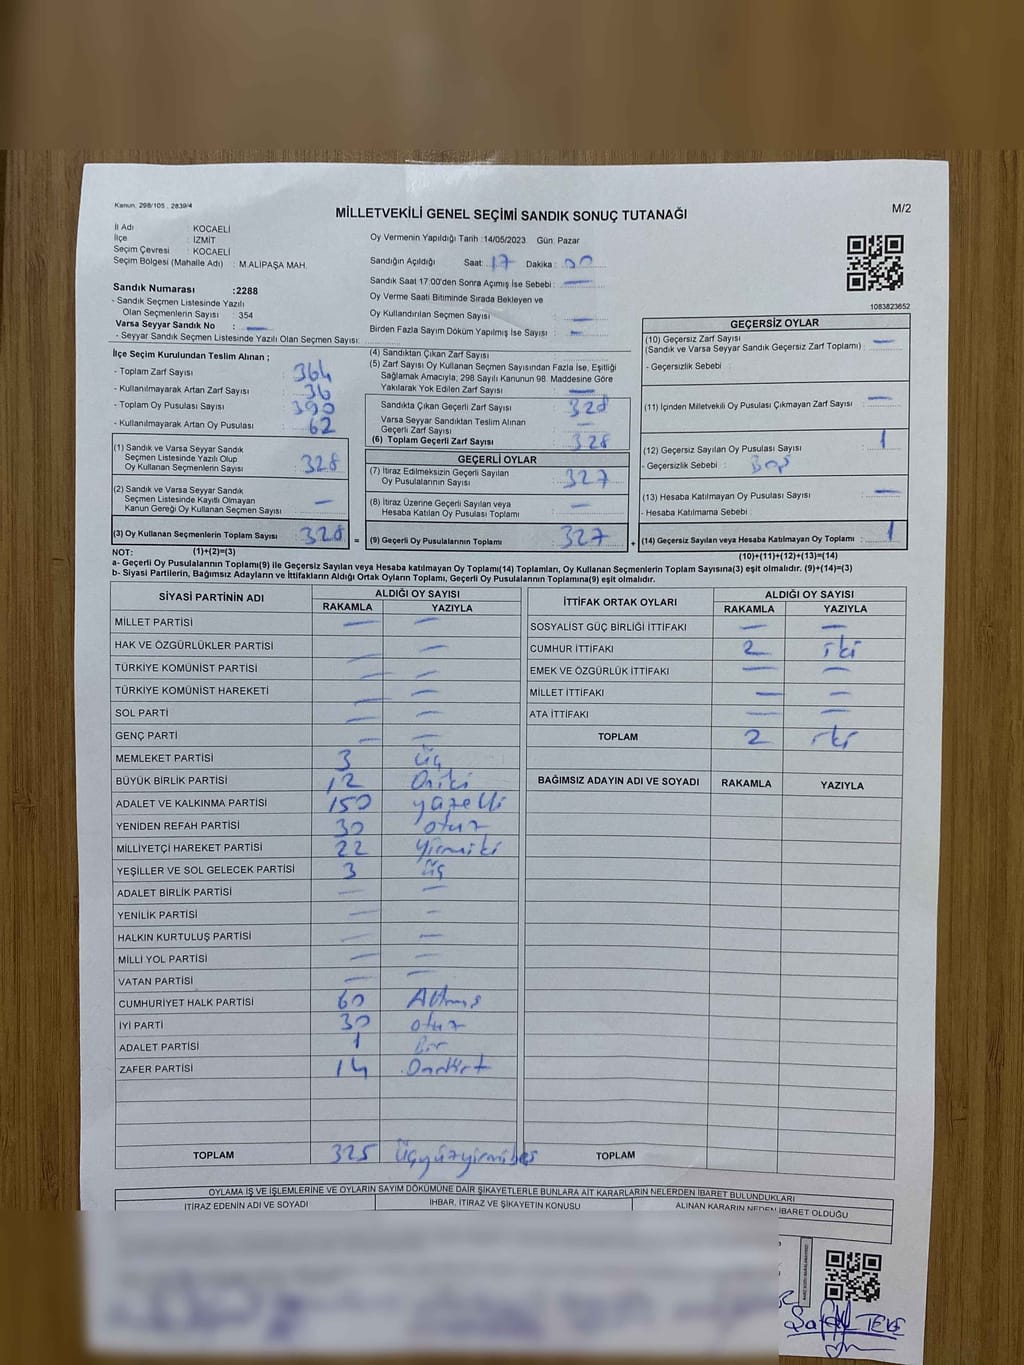 Kanun, 298/105 , 2839/4
MİLLETVEKİLİ GENEL SEÇİMİ SANDIK SONUÇ TUTANAĞI
M/2
İl Adı : KOCAELİ
İlçe : İZMİT
Seçim Çevresi : KOCAELİ
Seçim Bölgesi (Mahalle Adı) : M.ALİPAŞA MAH.
Sandık Numarası :2288
- Sandık Seçmen Listesinde Yazılı
Olan Seçmenlerin Sayısı : 354
Varsa Seyyar Sandık No : —
- Seyyar Sandık Seçmen Listesinde Yazılı Olan Seçmen Sayısı:
Oy Vermenin Yapıldığı Tarih :14/05/2023 Gün: Pazar
Sandığın Açıldığı Saat: 17 Dakika : 00
Sandık Saat 17:00'den Sonra Açımış İse Sebebi : —
Oy Verme Saati Bitiminde Sırada Bekleyen ve
Oy Kullandırılan Seçmen Sayısı : —
Birden Fazla Sayım Döküm Yapılmış İse Sayısı : —
1083823652
İlçe Seçim Kurulundan Teslim Alınan ;
- Toplam Zarf Sayısı : 364
- Kullanılmayarak Artan Zarf Sayısı : 36
- Toplam Oy Pusulası Sayısı : 390
- Kullanılmayarak Artan Oy Pusulası : 62
(1) Sandık ve Varsa Seyyar Sandık
Seçmen Listesinde Yazılı Olup
Oy Kullanan Seçmenlerin Sayısı : 328
(2) Sandık ve Varsa Seyyar Sandık
Seçmen Listesinde Kayıtlı Olmayan
Kanun Gereği Oy Kullanan Seçmen Sayısı : —
(3) Oy Kullanan Seçmenlerin Toplam Sayısı : 328 =
(4) Sandıktan Çıkan Zarf Sayısı :
(5) Zarf Sayısı Oy Kullanan Seçmen Sayısından Fazla İse, Eşitliği
Sağlamak Amacıyla; 298 Sayılı Kanunun 98. Maddesine Göre
Yakılarak Yok Edilen Zarf Sayısı : —
Sandıkta Çıkan Geçerli Zarf Sayısı : 328
Varsa Seyyar Sandıktan Teslim Alınan
Geçerli Zarf Sayısı : —
(6) Toplam Geçerli Zarf Sayısı : 328
GEÇERLİ OYLAR
(7) İtiraz Edilmeksizin Geçerli Sayılan
Oy Pusulalarının Sayısı : 327
(8) İtiraz Üzerine Geçerli Sayılan veya
Hesaba Katılan Oy Pusulası Toplamı : —
(9) Geçerli Oy Pusulalarının Toplamı : 327 +
GEÇERSİZ OYLAR
(10) Geçersiz Zarf Sayısı
(Sandık ve Varsa Seyyar Sandık Geçersiz Zarf Toplamı) : —
- Geçersizlik Sebebi :
(11) İçinden Milletvekili Oy Pusulası Çıkmayan Zarf Sayısı : —
(12) Geçersiz Sayılan Oy Pusulası Sayısı : 1
- Geçersizlik Sebebi : Boş
(13) Hesaba Katılmayan Oy Pusulası Sayısı : —
- Hesaba Katılmama Sebebi :
(14) Geçersiz Sayılan veya Hesaba Katılmayan Oy Toplamı : 1
NOT: (1)+(2)=(3)
(10)+(11)+(12)+(13)=(14)
a- Geçerli Oy Pusulasının Toplamı(9) ile Geçersiz Sayılan veya Hesaba katılmayan Oy Toplamı(14) Toplamları, Oy Kullanan Seçmenlerin Toplam Sayısına(3) eşit olmalıdır. (9)+(14)=(3)
b- Siyasi Partilerin, Bağımsız Adayların ve İttifakların Aldığı Ortak Oyların Toplamı, Geçerli Oy Pusulalarının Toplamına(9) eşit olmalıdır.
SİYASİ PARTİNİN ADI ALDIĞI OY SAYISI
RAKAMLA YAZIYLA
MİLLET PARTİSİ — —
HAK VE ÖZGÜRLÜKLER PARTİSİ — —
TÜRKİYE KOMÜNİST PARTİSİ — —
TÜRKİYE KOMÜNİST HAREKETİ — —
SOL PARTİ — —
GENÇ PARTİ — —
MEMLEKET PARTİSİ 3 üç
BÜYÜK BİRLİK PARTİSİ 12 Oniki
ADALET VE KALKINMA PARTİSİ 150 yüzelli
YENİDEN REFAH PARTİSİ 30 otuz
MİLLİYETÇİ HAREKET PARTİSİ 22 Yirmiiki
YEŞİLLER VE SOL GELECEK PARTİSİ 3 üç
ADALET BİRLİK PARTİSİ — —
YENİLİK PARTİSİ — —
HALKIN KURTULUŞ PARTİSİ — —
MİLLİ YOL PARTİSİ — —
VATAN PARTİSİ — —
CUMHURİYET HALK PARTİSİ 60 Altmış
İYİ PARTİ 30 otuz
ADALET PARTİSİ 1 Bir
ZAFER PARTİSİ 14 Ondört
TOPLAM 325 üçyüzyirmibeş
İTTİFAK ORTAK OYLARI ALDIĞI OY SAYISI
RAKAMLA YAZIYLA
SOSYALİST GÜÇ BİRLİĞİ İTTİFAKI — —
CUMHUR İTTİFAKI 2 iki
EMEK VE ÖZGÜRLÜK İTTİFAKI — —
MİLLET İTTİFAKI — —
ATA İTTİFAKI — —
TOPLAM 2 iki
BAĞIMSIZ ADAYIN ADI VE SOYADI RAKAMLA YAZIYLA
TOPLAM
OYLAMA İŞ VE İŞLEMLERİNE VE OYLARIN SAYIM DÖKÜMÜNE DAİR ŞİKAYETLERLE BUNLARA AİT KARARLARIN NELERDEN İBARET BULUNDUKLARI
İTİRAZ EDENİN ADI VE SOYADI İHBAR, İTİRAZ VE ŞİKAYETİN KONUSU ALINAN KARARIN NEDEN İBARET OLDUĞU
TEKE